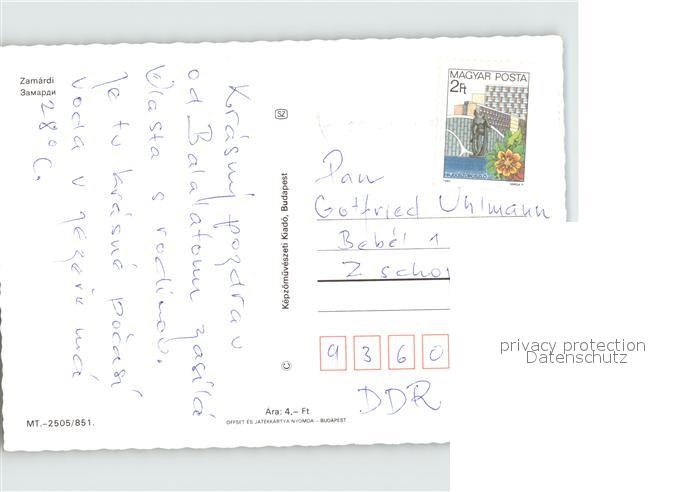 Zamárdi
Замарди
Krásný pozdrav
od Balalatonu zasílá
Vlasta s rodinou.
Je tu krásné počasí
voda v jezeře má
28° C.
MT.-2505/851.
Képzőművészeti Kiadó, Budapest
©
SZ
Ára: 4,– Ft
OFFSET ÉS JÁTÉKKÁRTYA NYOMDA – BUDAPEST
MAGYAR POSTA
2Ft
Pan
Gottfried Uhlmann
Bebel 1
Zscho
9 3 6 0
DDR
privacy protection
Datenschutz